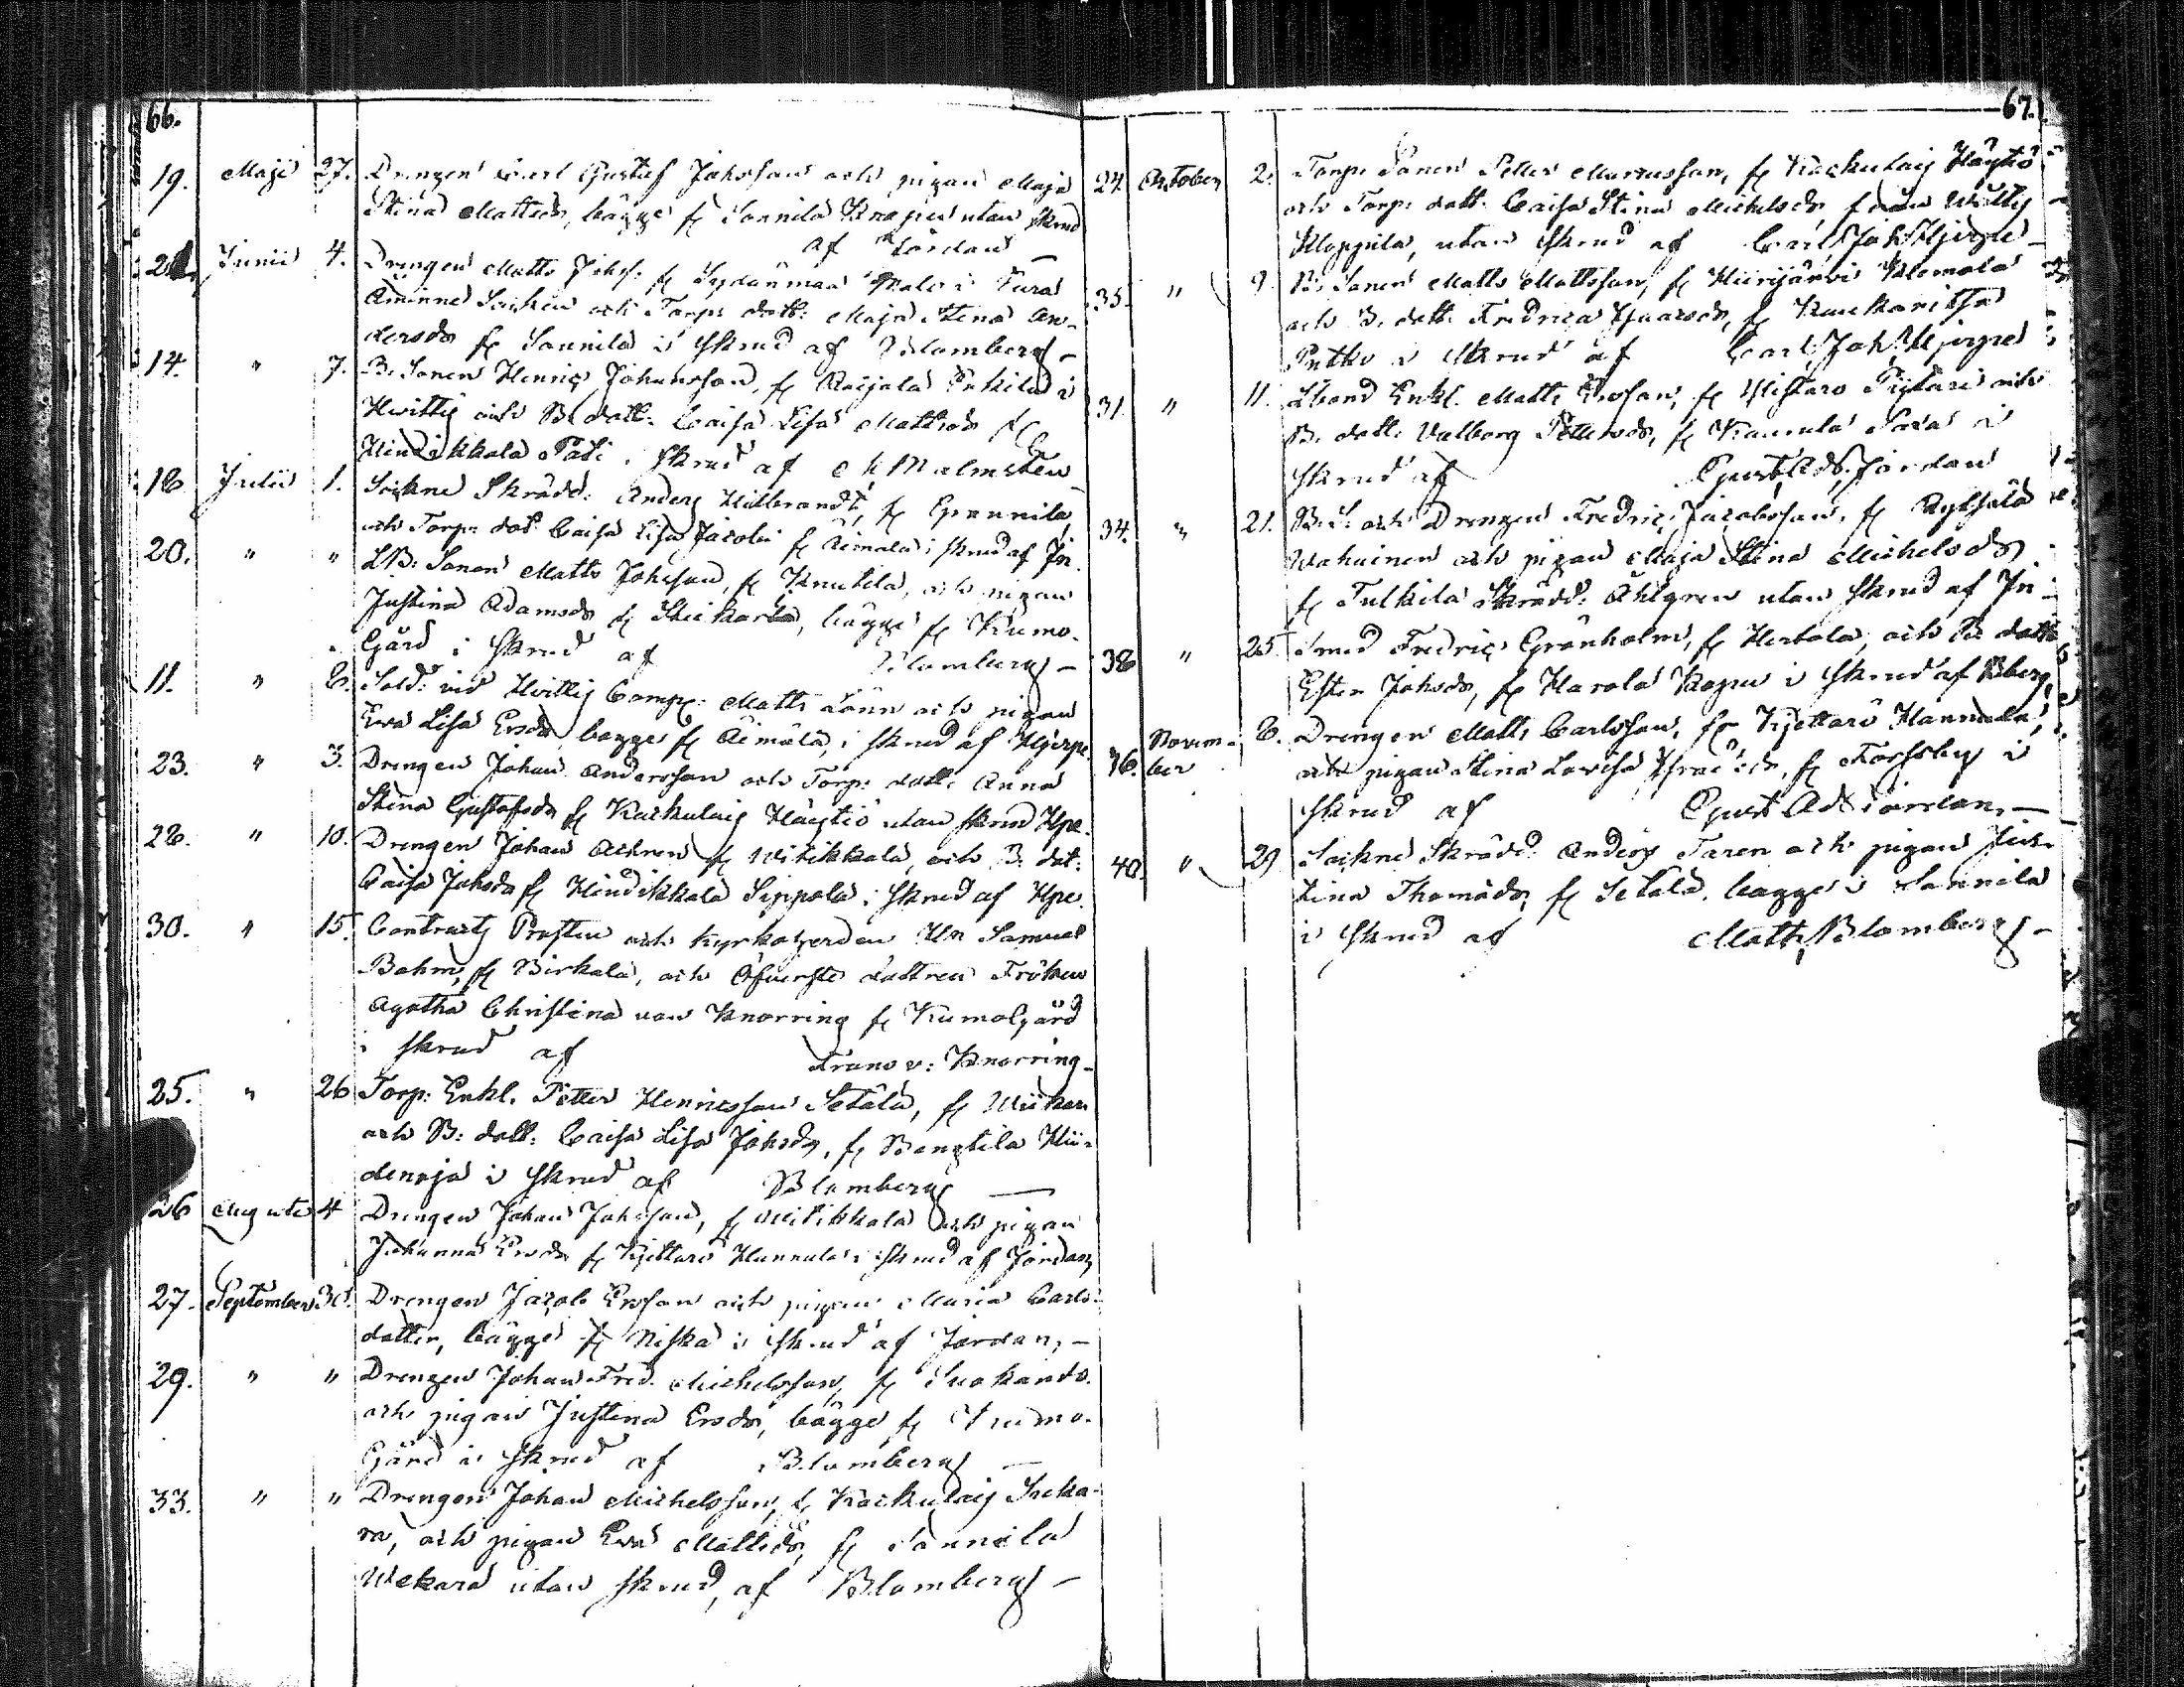 66.
19. Maji 27. Drengen Carl Gustaf Johsson och pigan Maja
Stina Mattsdr, bägge fr Sonnila Knapu utan skrud
af Jordan
Junii 4. Drengen Matts Johss. fr Sydänmaa i Eura
Åminne Sockn och Torp: dott: Maja Stina An-
dersdr fr Sonnila i skrud af Blomberg –
14. " 7. B. Sonen Henric Johansson, fr Raijala Pukila i
Hvittis och B. dott: Caisa Lisa Mattsdr fr
Hindikkala Pädi i skrud af Malmsten
18 Julii 1. Sockne Skrädd: Anders Hillbrandt, fr Grannila
och Torp: dot: Caisa Lisa Jacobs: fr Äimälä i skrud af Jn.
20. " " LB: Sonen Matts Johsson, fr Knutila, och pigan
Justina Adamsdr fr bägge fr Kumo-
Gård i skrud af Blomberg –
11. " 8. Sold: vid Hvittis Comp: Matts Lönn och pigan
Eva Lisa Ersdr bägge fr Äimälä, i skrud af Hjerpe
23. " 3. Drengen Johan Andersson och Torp: dott: Anna
Stina Gustafsdr fr Kackulais Häyhtiö utan skrud Hpe.
28. " 10. Drengen Johan Achren fr Witikkala, och B. dot:
Caisa Johsdr fr Hindikkala Sippola i skrud af Hpe.
30. " 15. Contracts Prosten och Kyrkoherden Hr Samuel
Bohm, fr Birkala, och Öfverste dottren Fröken
Agatha Christina von Knorring fr Kumogård
i skrud af Frans v: Knorring –
25. " 26 Torp: Enkl. Petter Henricsson Setälä, fr Wiikari
och B: dott: Caisa Lisa Johsdr, fr Bengtila Hii-
denoja i skrud af Blomberg —
26 Augusti 4 Drengen Johan Johsson, fr Witikkala och pigan
Johanna Ersdr fr Kjettarö Hannula i skrud af Jordan,
27. September 30. Drengen Jacob Ersson och pigan Maria Carls-
dotter, bägge fr Niska i skrud af Jordan, –
29. " " Drengen Johan Fred. Michelsson, fr Suokanto.
och pigan Justina Ersdr, bägge fr Kumo-
Gård i skrud af Blomberg —
33. " " Drengen Johan Michelsson, fr Kackulais Sicka-
ra, och pigan Eva Mattsdr, fr Sonnila
Wekara utan skrud, af Blomberg –
67.
24. October 2. Torp: Sonen Petter Marcusson, fr Kackulais Häyhtiö
och Torp: dott. Caisa Stina Michelsdr, från Hvittis
Kloppila, utan skrud af Carl Joh Hjerpe –
35. " 9. B. Sonen Matts Mattsson, fr Hiirijärvi Klemola
och B. dott. Fredrica Isaacsdr, fr Kaukaritsa
Prtko i skrud af Carl Joh Hjerpe
31. " 11. Lbond Enkl. Matts Ersson, fr Histaro Pijtari och
B. dott. Valborg Pettersdr, fr Kaurula Saxa i
skrud af Gust Ad. Jordan
34. " 21. B. S. och Drengen Fredric Jacobsson, fr Ryksälä
Wahainen och pigan Maja Stina Michelsdr
fr Tulkila Skrädd: Åhlgren utan skrud af Jn
38 " 25. Smed Fredric Grönholm, fr Hertola, och B. dott
Ester Johsdr, fr Harola Kopu i skrud af Bberg,
36. November 8. Drengen Matts Carlsson, fr Kjettarö Hannula,
och pigan Stina Lovisa Israelsdr, fr Forssby i
skrud af Gust Ad Jordan, —
40. " 29 Sockne Skrädd: Anders Toren och pigan
Lina Thomädr, fr Setälä, bägge i Sonnila
i skrud af Math, Blomberg –